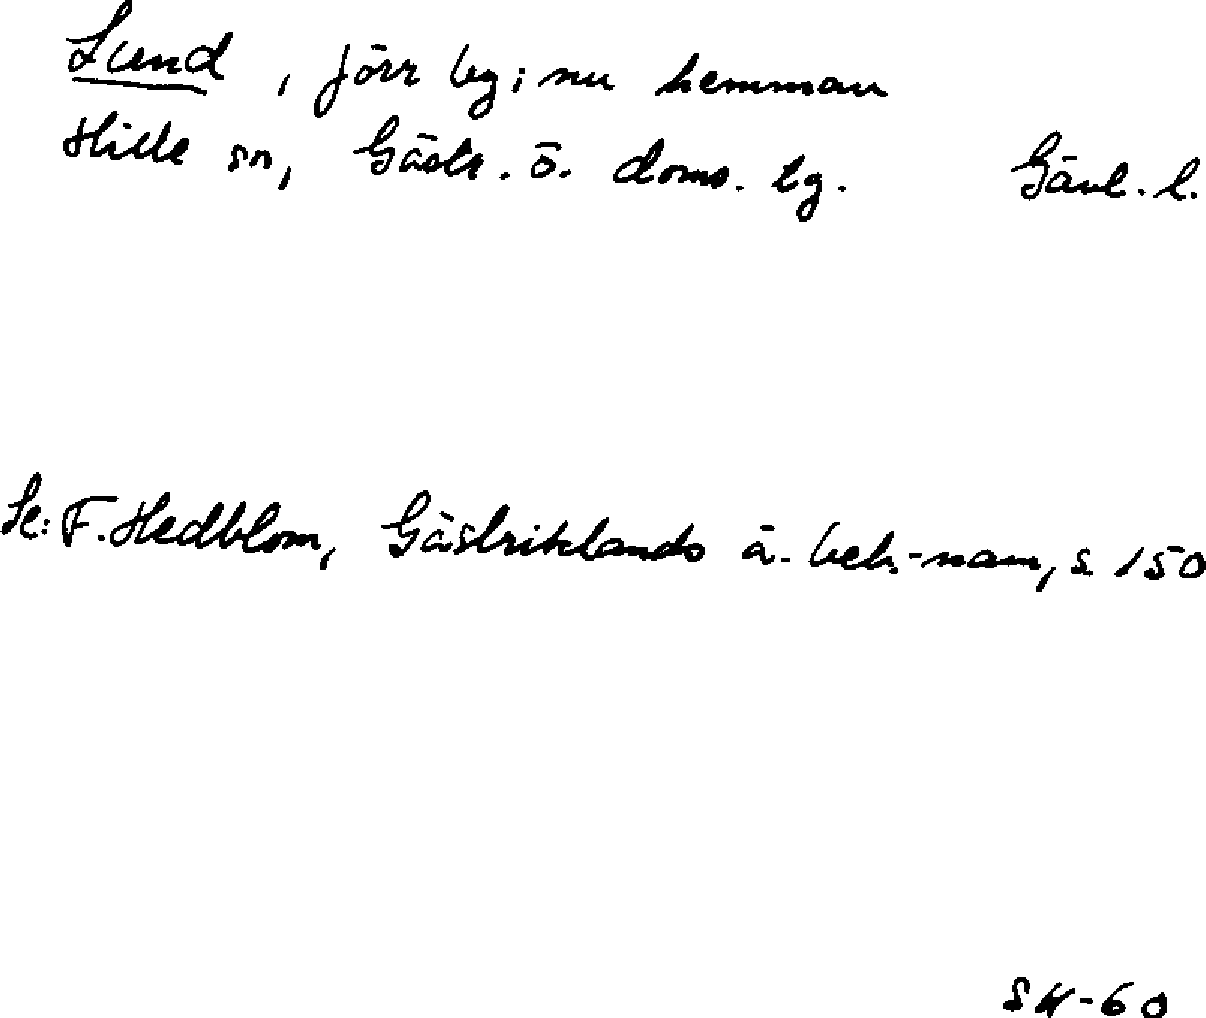 Lund, förr by; nu hemman
Hille sn, Gästr. ö. doms. lg. Gävl. l.
Se: F. Hedblom, Gästriklands ä. beb.-namn, s 150
SH-60